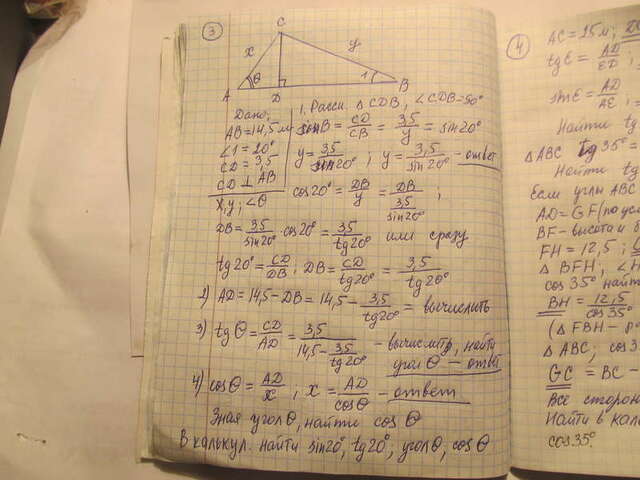 3
C
x
y
θ
1
A
D
B
Дано:
AB=14,5 м
∠1=20°
CD=3,5
CD⊥AB
x; y; ∠θ
1. Рассм. △CDB, ∠CDB=90°
sinB = CD/CB = 3,5/y = sin20°
y = 3,5/sin20° ; y = 3,5/sin20° - ответ
cos20° = DB/y = DB/(3,5/sin20°) ;
DB = 3,5/sin20° cos20° = 3,5/tg20° или сразу
tg20° = CD/DB ; DB = CD/tg20° = 3,5/tg20°
2) AD=14,5-DB=14,5- 3,5/tg20° = вычислить
3) tgθ = CD/AD = 3,5/(14,5- 3,5/tg20°) - вычислить, найти
угол θ - ответ
4) cosθ = AD/x ; x = AD/cosθ - ответ
Зная угол θ, найти cosθ
В калькул. найти sin20°, tg20°, угол θ, cosθ
4
AC=15м;
tgE = AD/ED ;
sinE = AD/AE ;
Найти tg
△ABC tg35°=
Найти tg
Если углы ABC
AD=GF (по усл
BF-высота и
FH=12,5;
△BFH; ∠H
cos35° найт
BH = 12,5/cos35°
(△FBH - р
△ABC; cos3
GC = BC -
Все сторон
Найти в каль
cos35°